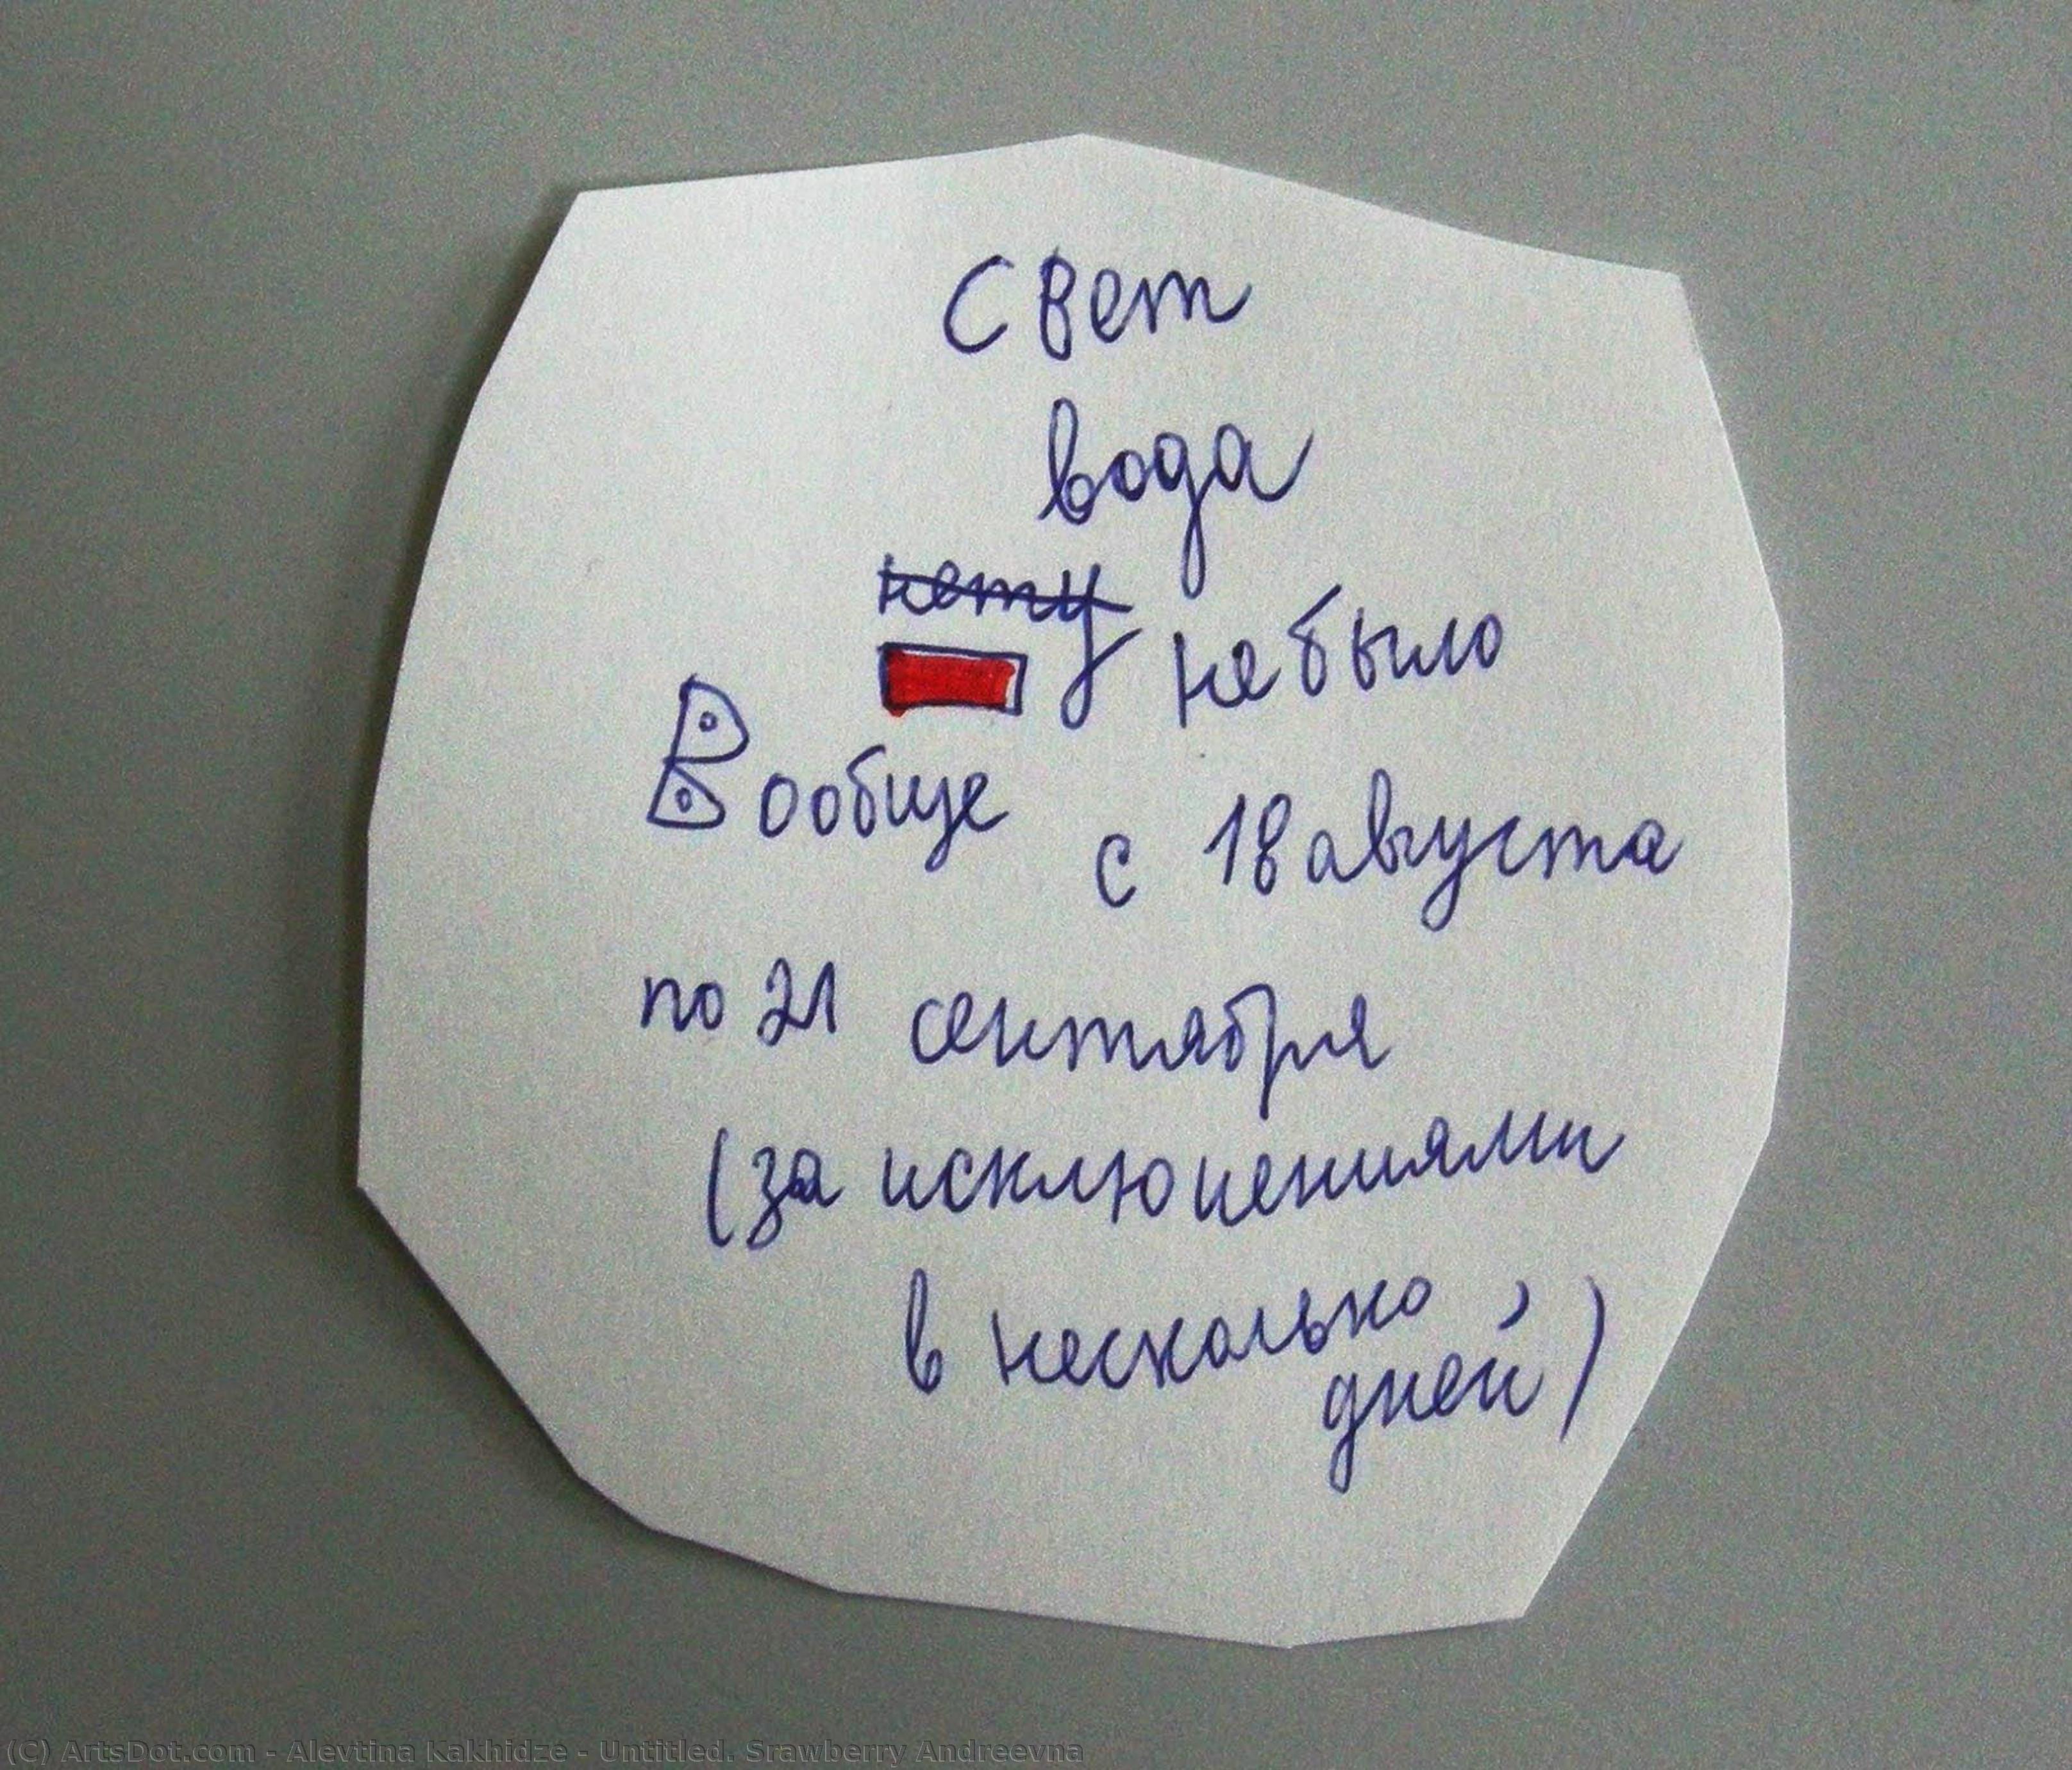 свет
вода
нету
не было
Вообще с 18 августа
по 21 сентября
(за исключениями
в несколько
дней)
(C) ArtsDot.com - Alevtina Kakhidze - Untitled. Srawberry Andreevna